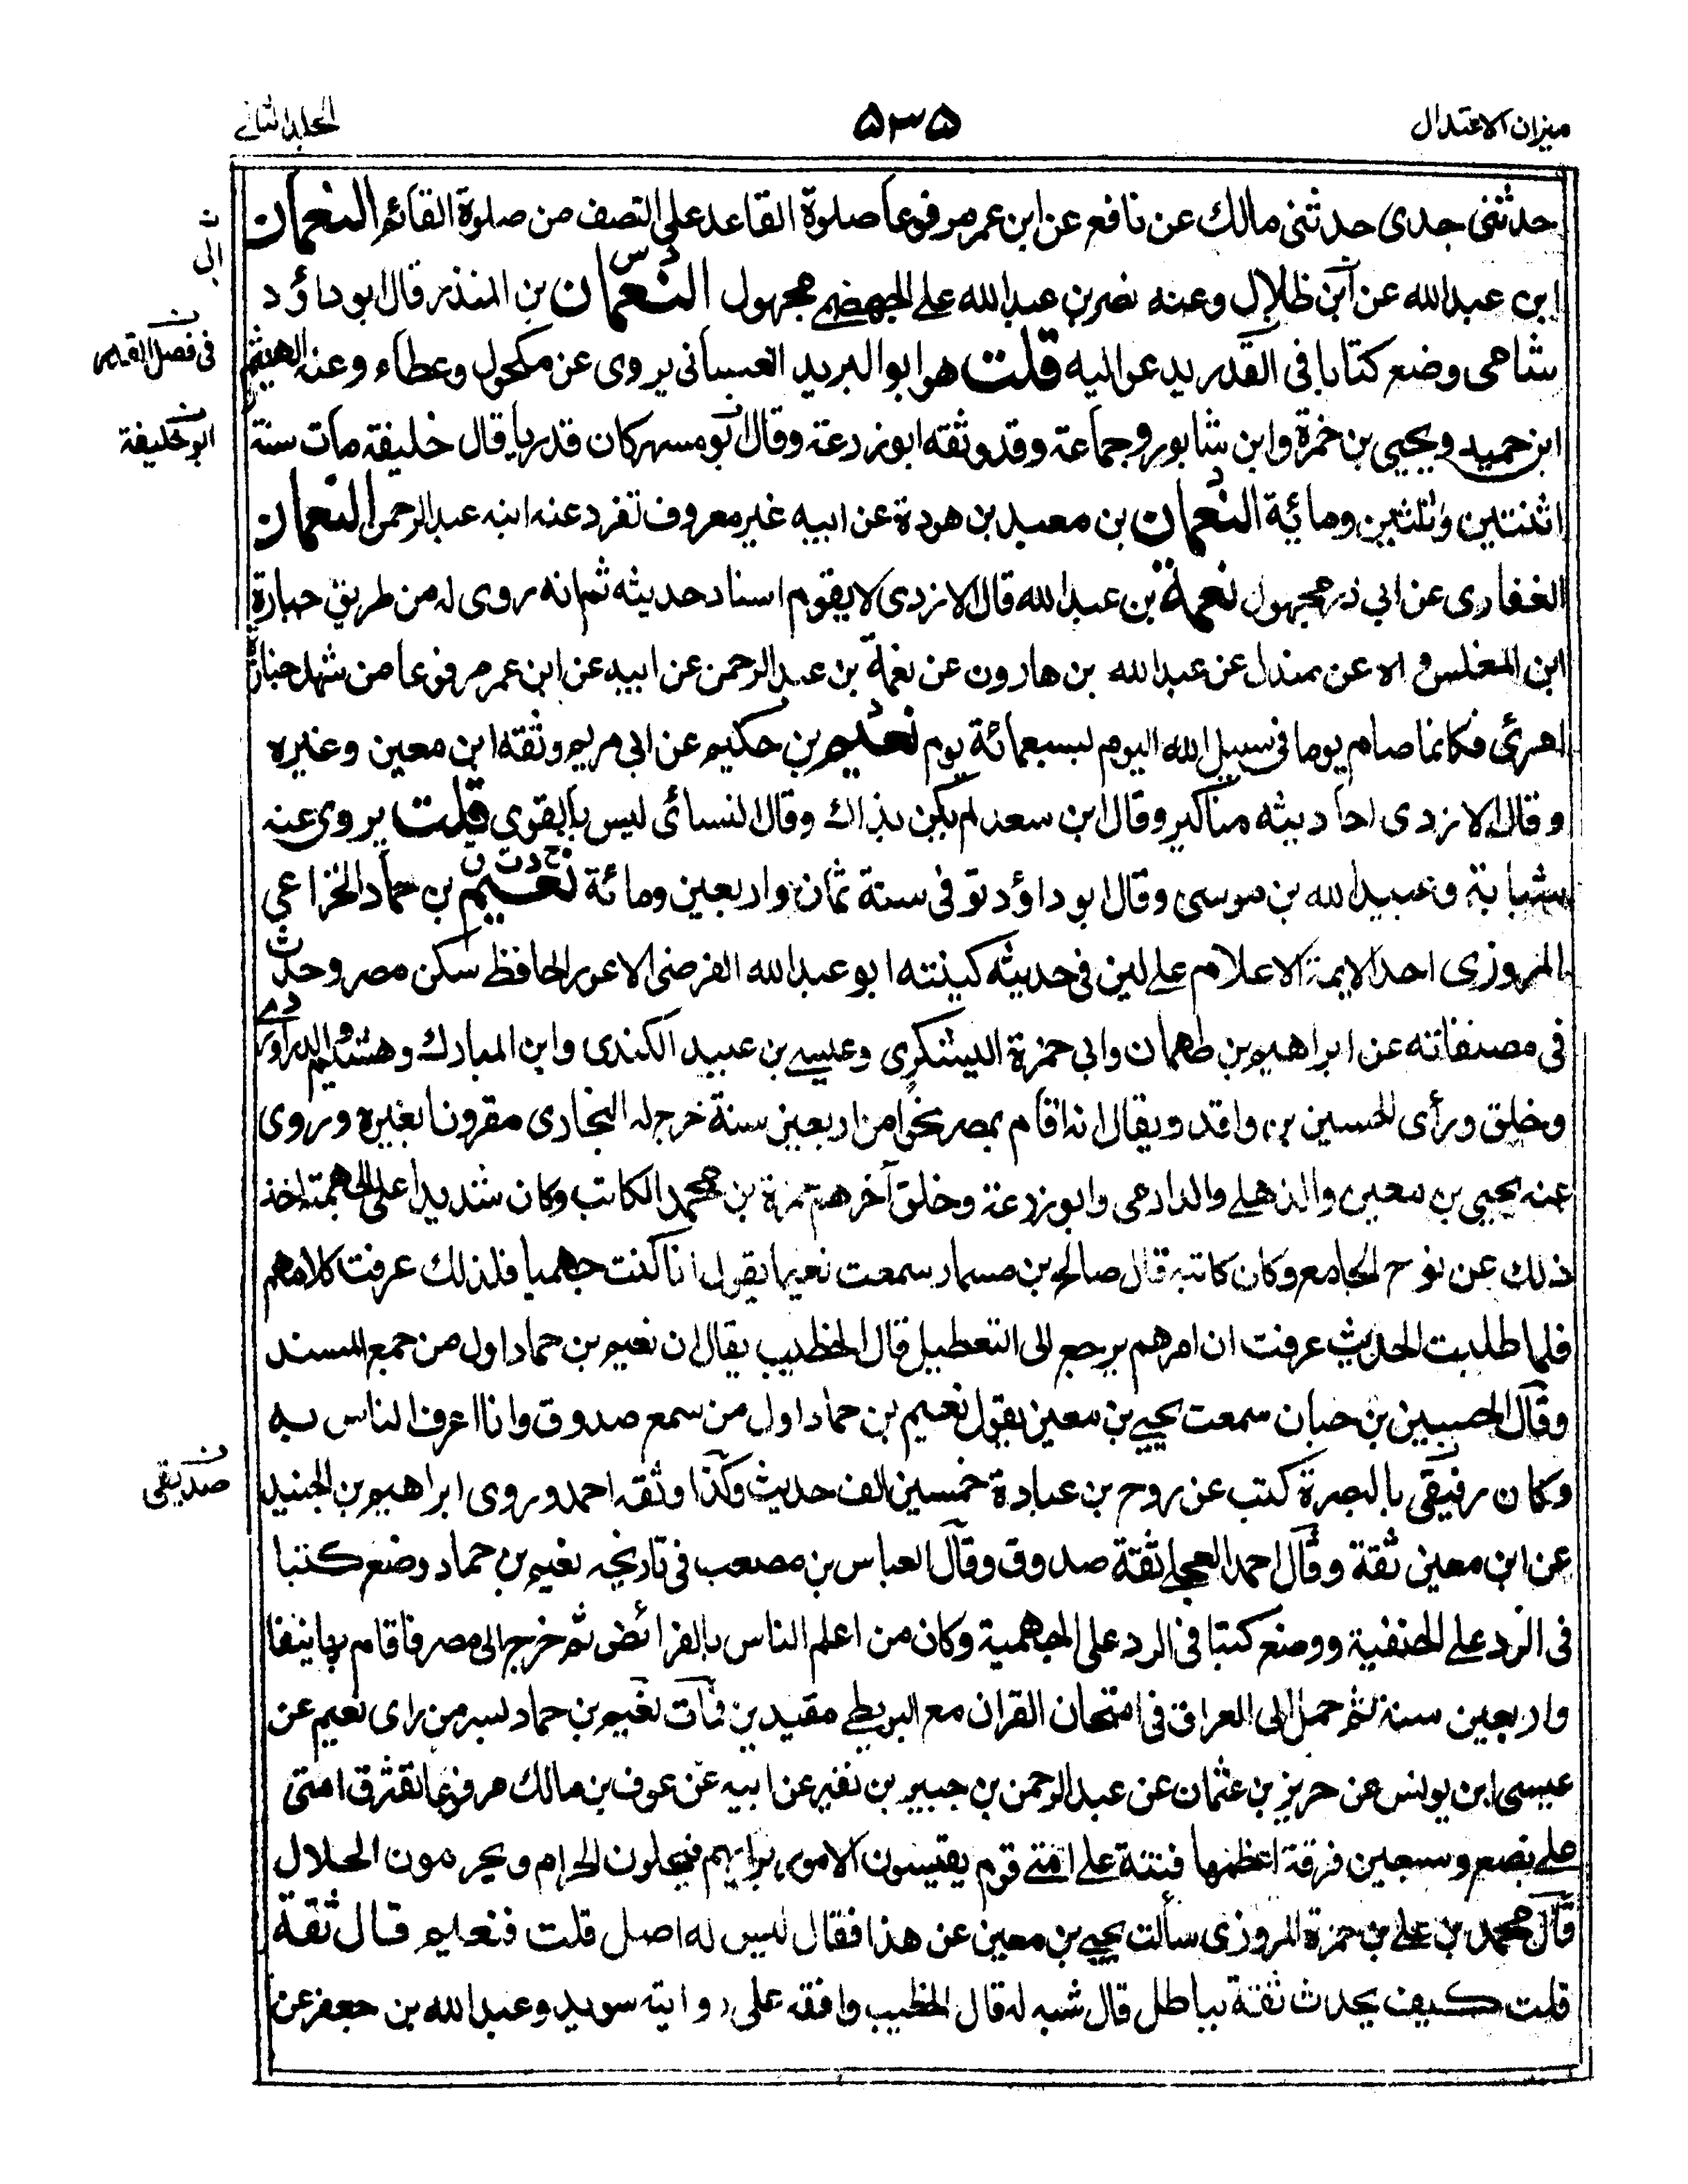 ميزان الاعتدال
۵۳۵
الجلد الثاني
حدثنى جدى حدثنى مالك عن نافع عن ابن عمر مرفوعا صلوة القاعد على النصف من صلوة القائم النعمان
ابن عبدالله عن ابن ظلال وعنه نصر بن عبدالله على الجهضمى مجهول النعمان بن المنذر قال ابو داؤد
شامى وضع كتابا فى القدر يدعو اليه قلت هو ابو البريد الغسانى يروى عن مكحول وعطاء وعنه الهيثم
ابن حميد ويحيى بن حمزة وابن شابور وجماعة وقد وثقه ابو زرعة وقال ابو مسهر كان قدريا قال خليفة مات سنة
اثنتين وثلثين ومائية النعمان بن معبد بن هودة عن ابيه غير معروف تفرد عنه ابنه عبدالرحمن النعمان
الغفارى عن ابي ذر مجهول نعمة بن عبدالله قال الازدى لا يقوم اسناد حديثه ثم انه روى له من طريق جبارة
ابن المغلس عن مندل عن عبدالله بن هارون عن نعمة بن عبدالرحمن عن ابيه عن ابن عمر مرفوعا من شهد جنازة
امرئ فكانما صام يوما فى سبيل الله اليوم بسبعمائة يوم نعيم بن حكيم عن ابي مريم وثقه ابن معين وغيره
وقال الازدى احاديثه مناكير وقال ابن سعد لم يكن بذاك وقال النسائى ليس بالقوى قلت يروى عنه
شبابة وعبيدالله بن موسى وقال ابو داؤد تو فى سنة ثمان واربعين ومائة نعيم بن حماد الخزاعي
المروزى احد الايمة الاعلام على لين فى حديثه كنيته ابو عبدالله الفرضى الاعور الحافظ سكن مصر وحدث
فى مصنفاته عن ابراهيم بن طهمان وابى حمزة اليشكرى وعيسى بن عبيد الكندى وابن المبارك وهشيم والدراوردے
وخلق ورأى الحسين بن واقد ويقال انه اقام بمصر نحوا من اربعين سنة خرج له البخارى مقرونا بغيره وروى
عنه يحيى بن معين والذهلى والدارمى وابو زرعة وخلق آخرهم حمزة بن محمد الكاتب وكان شديدا على الجهمية اخذ
ذلك عن نوح الجامع وكان كاتبه قال صالح بن مسمار سمعت نعيما يقول انا كنت جهميا فلذلك عرفت كلامهم
فلما طلبت الحديث عرفت ان امرهم يرجع الى التعطيل قال الخطيب يقال ان نعيم بن حماد اول من جمع المسند
وقال الحسين بن حبان سمعت يحيى بن معين يقول نعيم بن حماد اول من سمع صدوق وانا اعرف الناس به
وكان رفيقى بالبصرة كتب عن روح بن عبادة خمسين الف حديث وكذا وثقه احمد وروى ابراهيم بن الجنيد
عن ابن معين ثقة وقال احمد العجلى ثقة صدوق وقال العباس بن مصعب فى تاريخه نعيم بن حماد وضع كتبا
فى الرد على الحنفية ووضع كتبا فى الرد على الجهمية وكان من اعلم الناس بالفرائض ثم خرج الى مصر فاقام بها نيفا
واربعين سنة ثم حمل الى العراق فى امتحان القران مع البويطى مقيدين فمات نعيم بن حماد بسر من راى نعيم عن
عيسى ابن يونس عن حريز بن عثمان عن عبدالرحمن بن جبير بن نفير عن ابيه عن عوف بن مالك مرفوعا تفترق امتى
على بضع وسبعين فرقة اعظمها فتنة على امتى قوم يقيسون الامور برايهم فيحلون الحرام ويحرمون الحلال
قال محمد بن على بن حمزة المروزى سألت يحيى بن معين عن هذا فقال ليس له اصل قلت فنعيم قال ثقة
قلت كيف يحدث ثقة بباطل قال شبه له قال الخطيب وافقه على روايته سويد وعبدالله بن جعفر عن
ن
ابى
ن
فى فصل القدر
ن
ابو خليفة
ن
صديقى